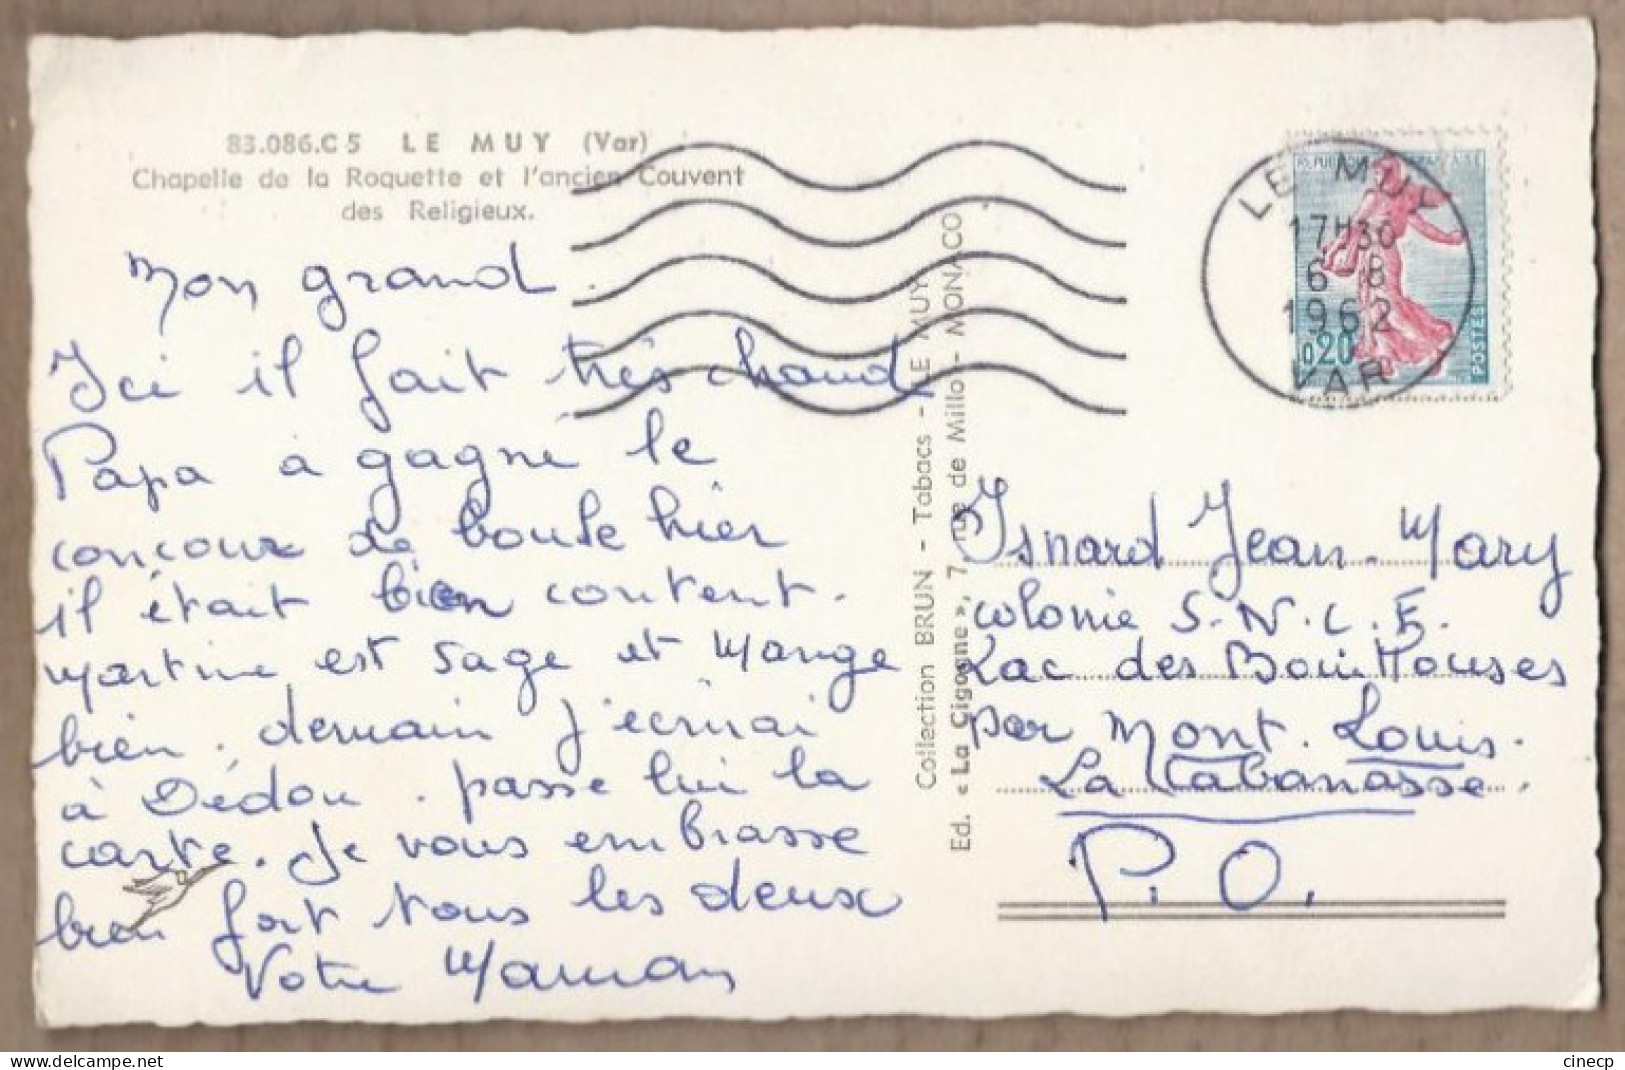 83.086.C5 LE MUY (Var)
Chapelle de la Roquette et l'ancien Couvent
des Religieux.
Mon grand.
Ici il fait très chaud
Papa à gagné le
concour de boule hier
il était bien content.
Martine est sage et mange
bien. demain j'écrirai
à Dédou. passe lui la
carte. Je vous embrasse
bien fort tous les deux
Votre Maman
Collection BRUN - Tabacs - LE MUY
Ed. « La Cigogne », 7, rue de Millo - MONACO
REPUBLIQUE FRANÇAISE
0,20
POSTES
LE MUY
17H30
6-8
1962
VAR
Isnard Jean-Mary
colonie S.N.C.F.
Lac des Bouillouses
par Mont. Louis.
La Cabanasse.
P.O.
cinecp